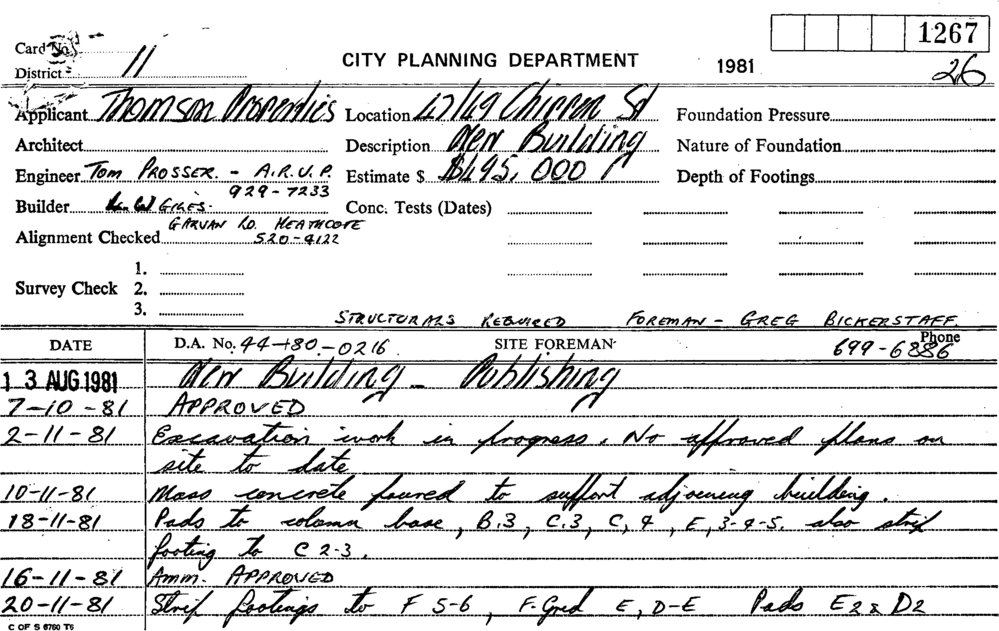 1267
Card No.
District 11
CITY PLANNING DEPARTMENT
1981
26
Applicant Thomson Properties
Location 47/49 Chippen St
Foundation Pressure
Architect
Description New Building
Nature of Foundation
Engineer Tom PROSSER. - A.R.U.P.
929-7233
Estimate $ $495,000
Depth of Footings
Builder GILES.
Conc. Tests (Dates)
GARVAN RD. HEATHCOTE
Alignment Checked 520-4122
1.
Survey Check 2.
3.
STRUCTURALS REQUIRED FOREMAN - GREG BICKERSTAFF.
DATE
D.A. No. 44-80-0216
SITE FOREMAN
Phone
699-6886
13 AUG 1981 New Building - Publishing
7-10-81 APPROVED
2-11-81 Excavation work in progress. No approved plans on
site to date
10-11-81 Mass concrete poured to support adjoining building.
18-11-81 Pads to column base, B.3, C.3, C,4, E,3-4-5. also strip
footing to C 2-3.
16-11-81 Amm. APPROVED
20-11-81 Strip footings to F 5-6, F. Grid E, D-E Pads E2 & D2
C OF S 6760 T6